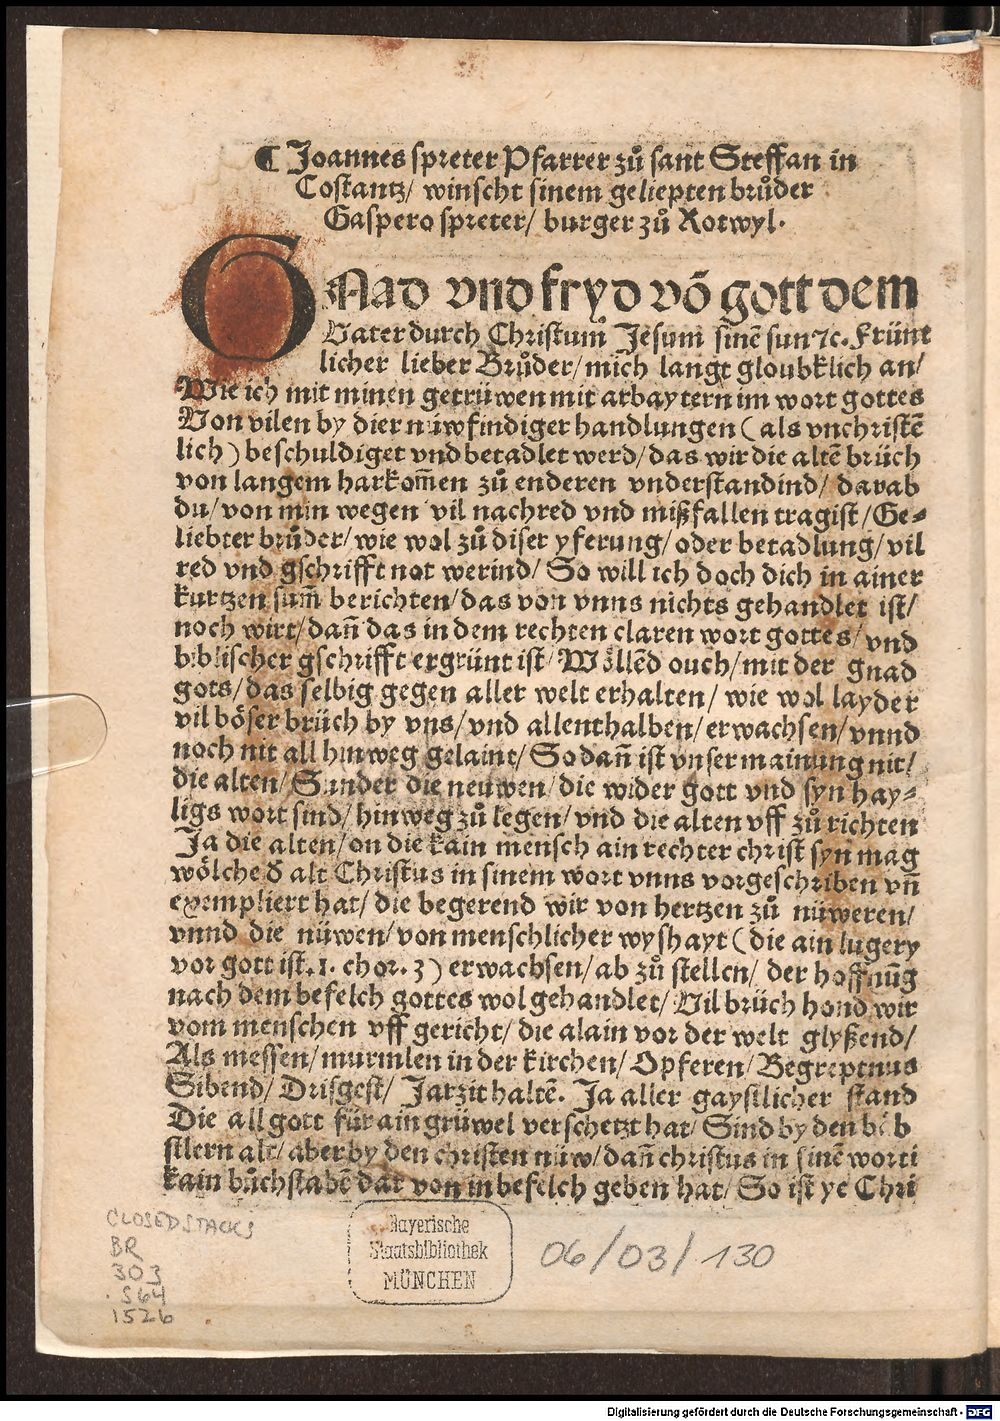 ¶ Joannes spreter Pfarrer zů sant Steffan in
Costantz/ winscht sinem geliepten brůder
Gaspero spreter/ burger zů Rotwyl.
GNad vnd fryd võ gott dem
Vater durch Christum Jesum sinē sun ⁊c. Früntlicher
licher lieber Brůder/ mich langt gloubklich an/
Wie ich mit minen getrüwen mit arbaytern im wort gottes
Von vilen by dier nüwfindiger handlungen (als vnchristē
lich) beschuldiget vnd betadlet werd/ das wir die altē brüch
von langem harkom̄en zů enderen vnderstandind/ darab
du/ von min wegen vil nachred vnd mißfallen tragist/ Ge⸗
liebter brůder/ wie wol zů diser yferung/ oder betadlung/ vil
red vnd gschrifft not werind/ So will ich doch dich in ainer
kurtzen sum̄ berichten/ das von vnns nichts gehandlet ist/
noch wirt/ dañ das in dem rechten claren wort gottes/ vnd
biblischer gschrifft ergrünt ist/ Wöllēd ouch/ mit der gnad
gots/ das selbig gegen aller welt erhalten/ wie wol layder
vil böser brüch by vns/ vnd allenthalben/ erwachsen/ vnnd
noch nit all hinweg gelaint/ So dañ ist vnser mainung nit/
die alten/ Sunder die neuwen/ die wider gott vnd syn hay⸗
ligs wort sind/ hinweg zů legen/ vnd die alten vff zů richten
Ja die alten/ on die kain mensch ain rechter christ syn mag
wölche đ alt Christus in sinem wort vnns vorgeschriben vñ
exempliert hat/ die begerend wir von hertzen zů nüweren/
vnnd die nüwen/ von menschlicher wyshayt (die ain lugery
vor gott ist. 1. chor. 3) erwachsen/ ab zů stellen/ der hoffnūg
nach dem befelch gottes wol gehandlet/ Vil brüch hond wir
vom menschen vff gericht/ die alain vor der welt glyßend/
Als messen/ murmlen in der kirchen/ Opferen/ Begreptnus
Sibend/ Drisgest/ Jarzit haltē. Ja aller gaystlicher stand
Die all gott für ain grüwel verschetzt hat/ Sind by den bäb
stlern alt/ aber by den christen nüw/ dañ christus in sinē worti
kain bůchstabē dar von in befelch geben hat/ So ist ye Chri
CLOSED STACKS
BR
303
.S64
1526
Bayerische
Staatsbibliothek
MÜNCHEN
06/03/130
Digitalisierung gefördert durch die Deutsche Forschungsgemeinschaft - DFG